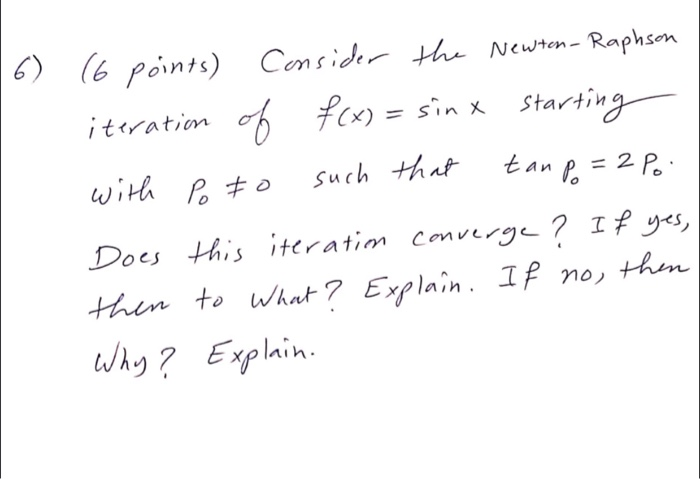 6) (6 points) Consider the Newton-Raphson
iteration of f(x) = sin x starting
with P₀ ≠ 0 such that tan P₀ = 2 P₀.
Does this iteration converge? If yes,
then to what? Explain. If no, then
Why? Explain.